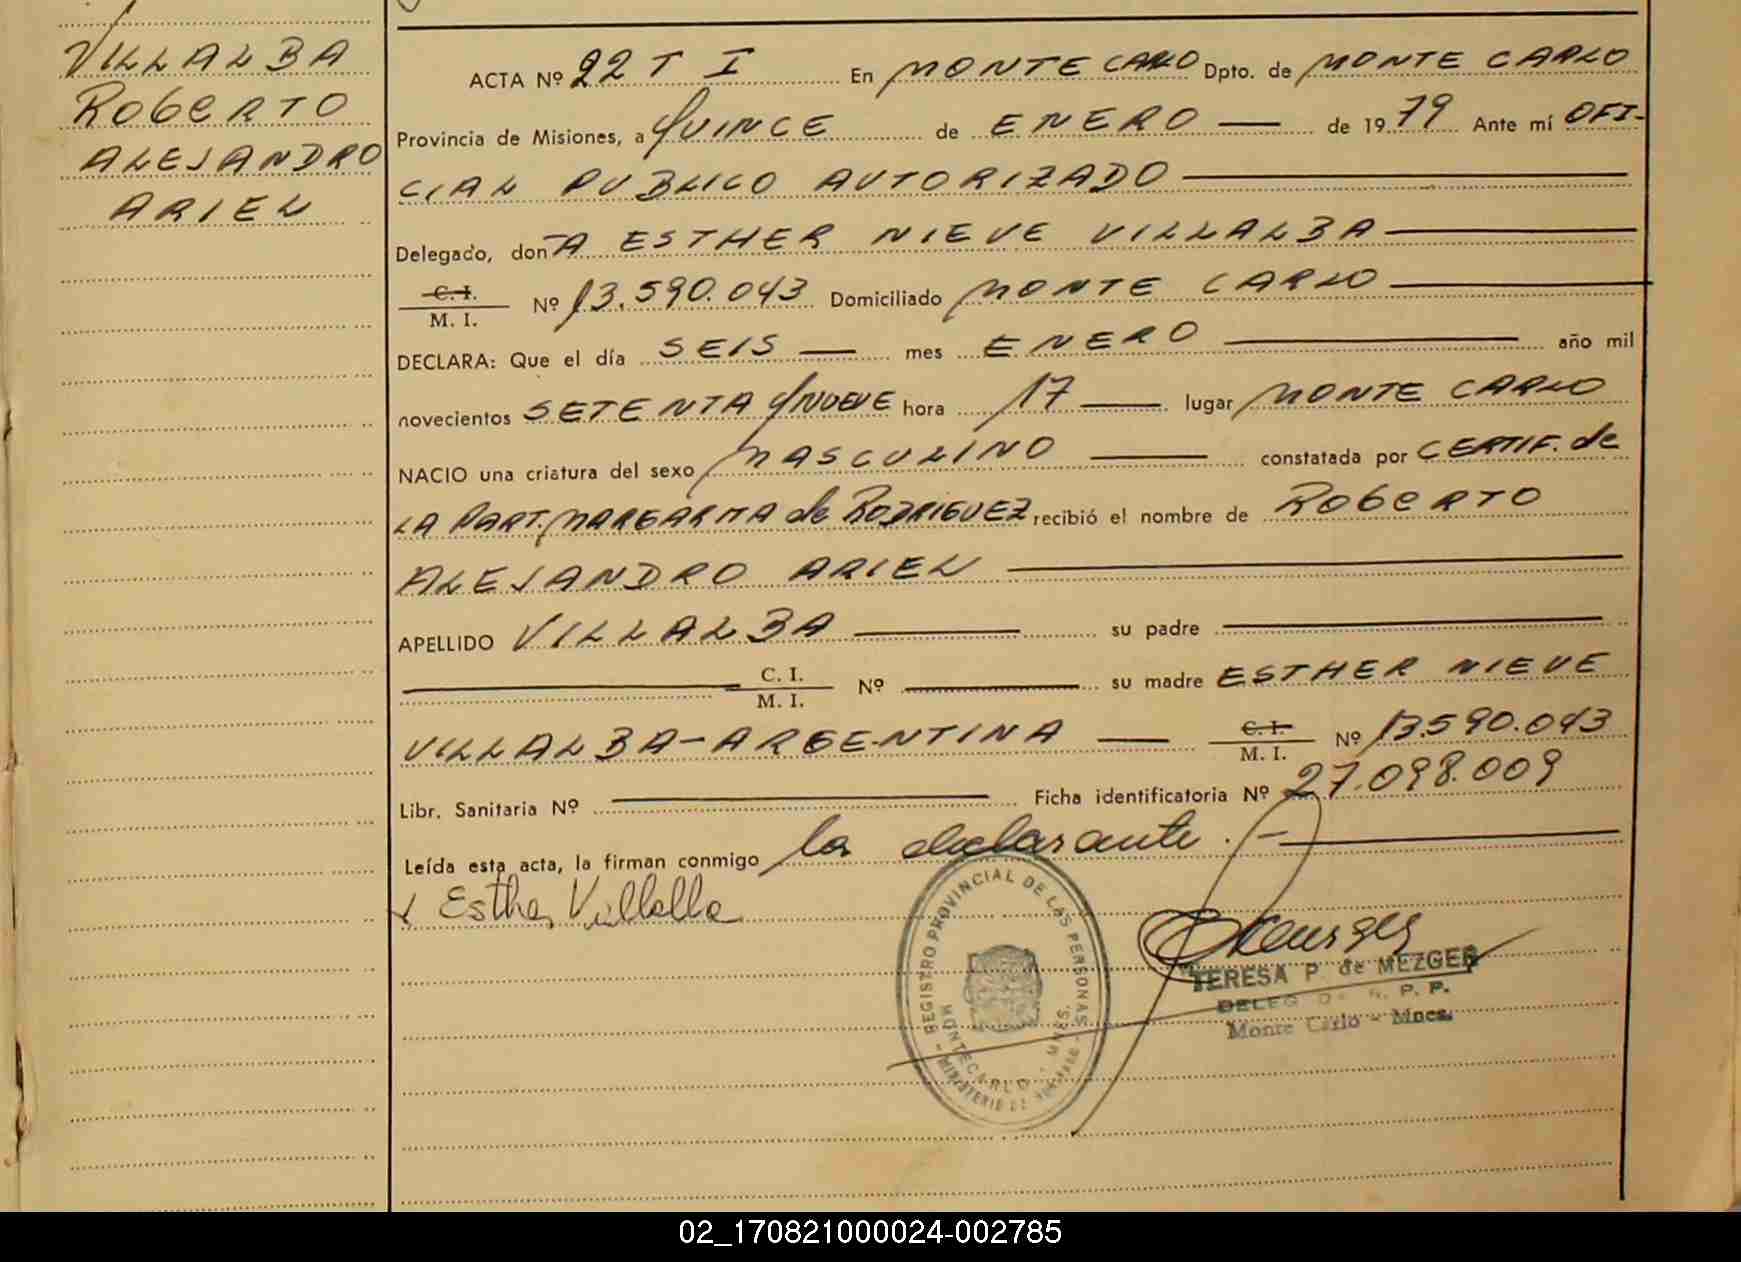 VILLALBA
ROBERTO
ALEJANDRO
ARIEL
ACTA Nº 22 T I En MONTECARLO Dpto. de MONTE CARLO
Provincia de Misiones, a QUINCE de ENERO de 1979 Ante mí OFI-
CIAL PUBLICO AUTORIZADO
Delegado, donA ESTHER NIEVE VILLALBA
C. I.
M. I. Nº 13.590.043 Domiciliado MONTE CARLO
DECLARA: Que el día SEIS mes ENERO año mil
novecientos SETENTA Y NUEVE hora 17 lugar MONTE CARLO
NACIO una criatura del sexo MASCULINO constatada por CERTIF. de
LA PART. MARGARITA de RODRIGUEZ recibió el nombre de ROBERTO
ALEJANDRO ARIEL
APELLIDO VILLALBA su padre
C. I.
M. I. Nº su madre ESTHER NIEVE
VILLALBA-ARGENTINA C. I.
M. I. Nº 13.590.043
Libr. Sanitaria Nº Ficha identificatoria Nº 27.098.009
Leída esta acta, la firman conmigo la declarante.-
x Esther Villalba
REGISTRO PROVINCIAL DE LAS PERSONAS
MONTECARLO - MNES.
MINISTERIO DE
TERESA P. de MEZGER
R. P. P.
Monte Carlo - Mnes.
02_170821000024-002785